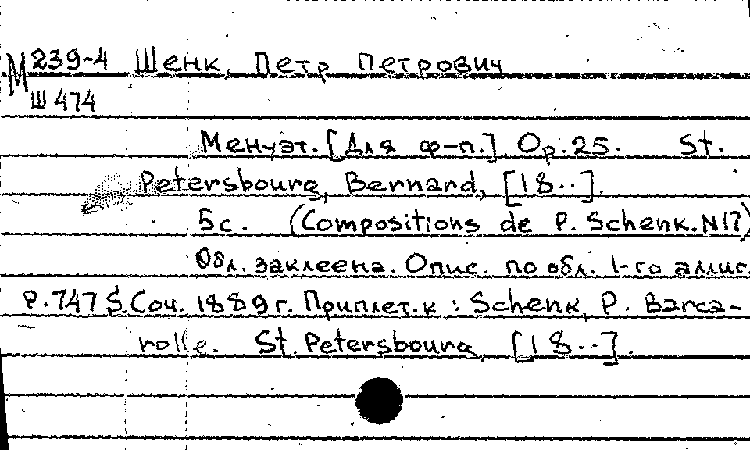 М 239-4 Шенк, Петр Петрович
Ш 474
Менуэт. [Для ф-п.] Op.25. St.
Petersbourg, Bernard, [18..].
5с. (Compositions de P. Schenk. N17)
Обл. заклеена. Опис. по обл. 1-го аллиг.
Р.747 § Соч. 1889 г. Приплет. к : Schenk, P. Barca-
rolle. St. Petersbourg, [18..].